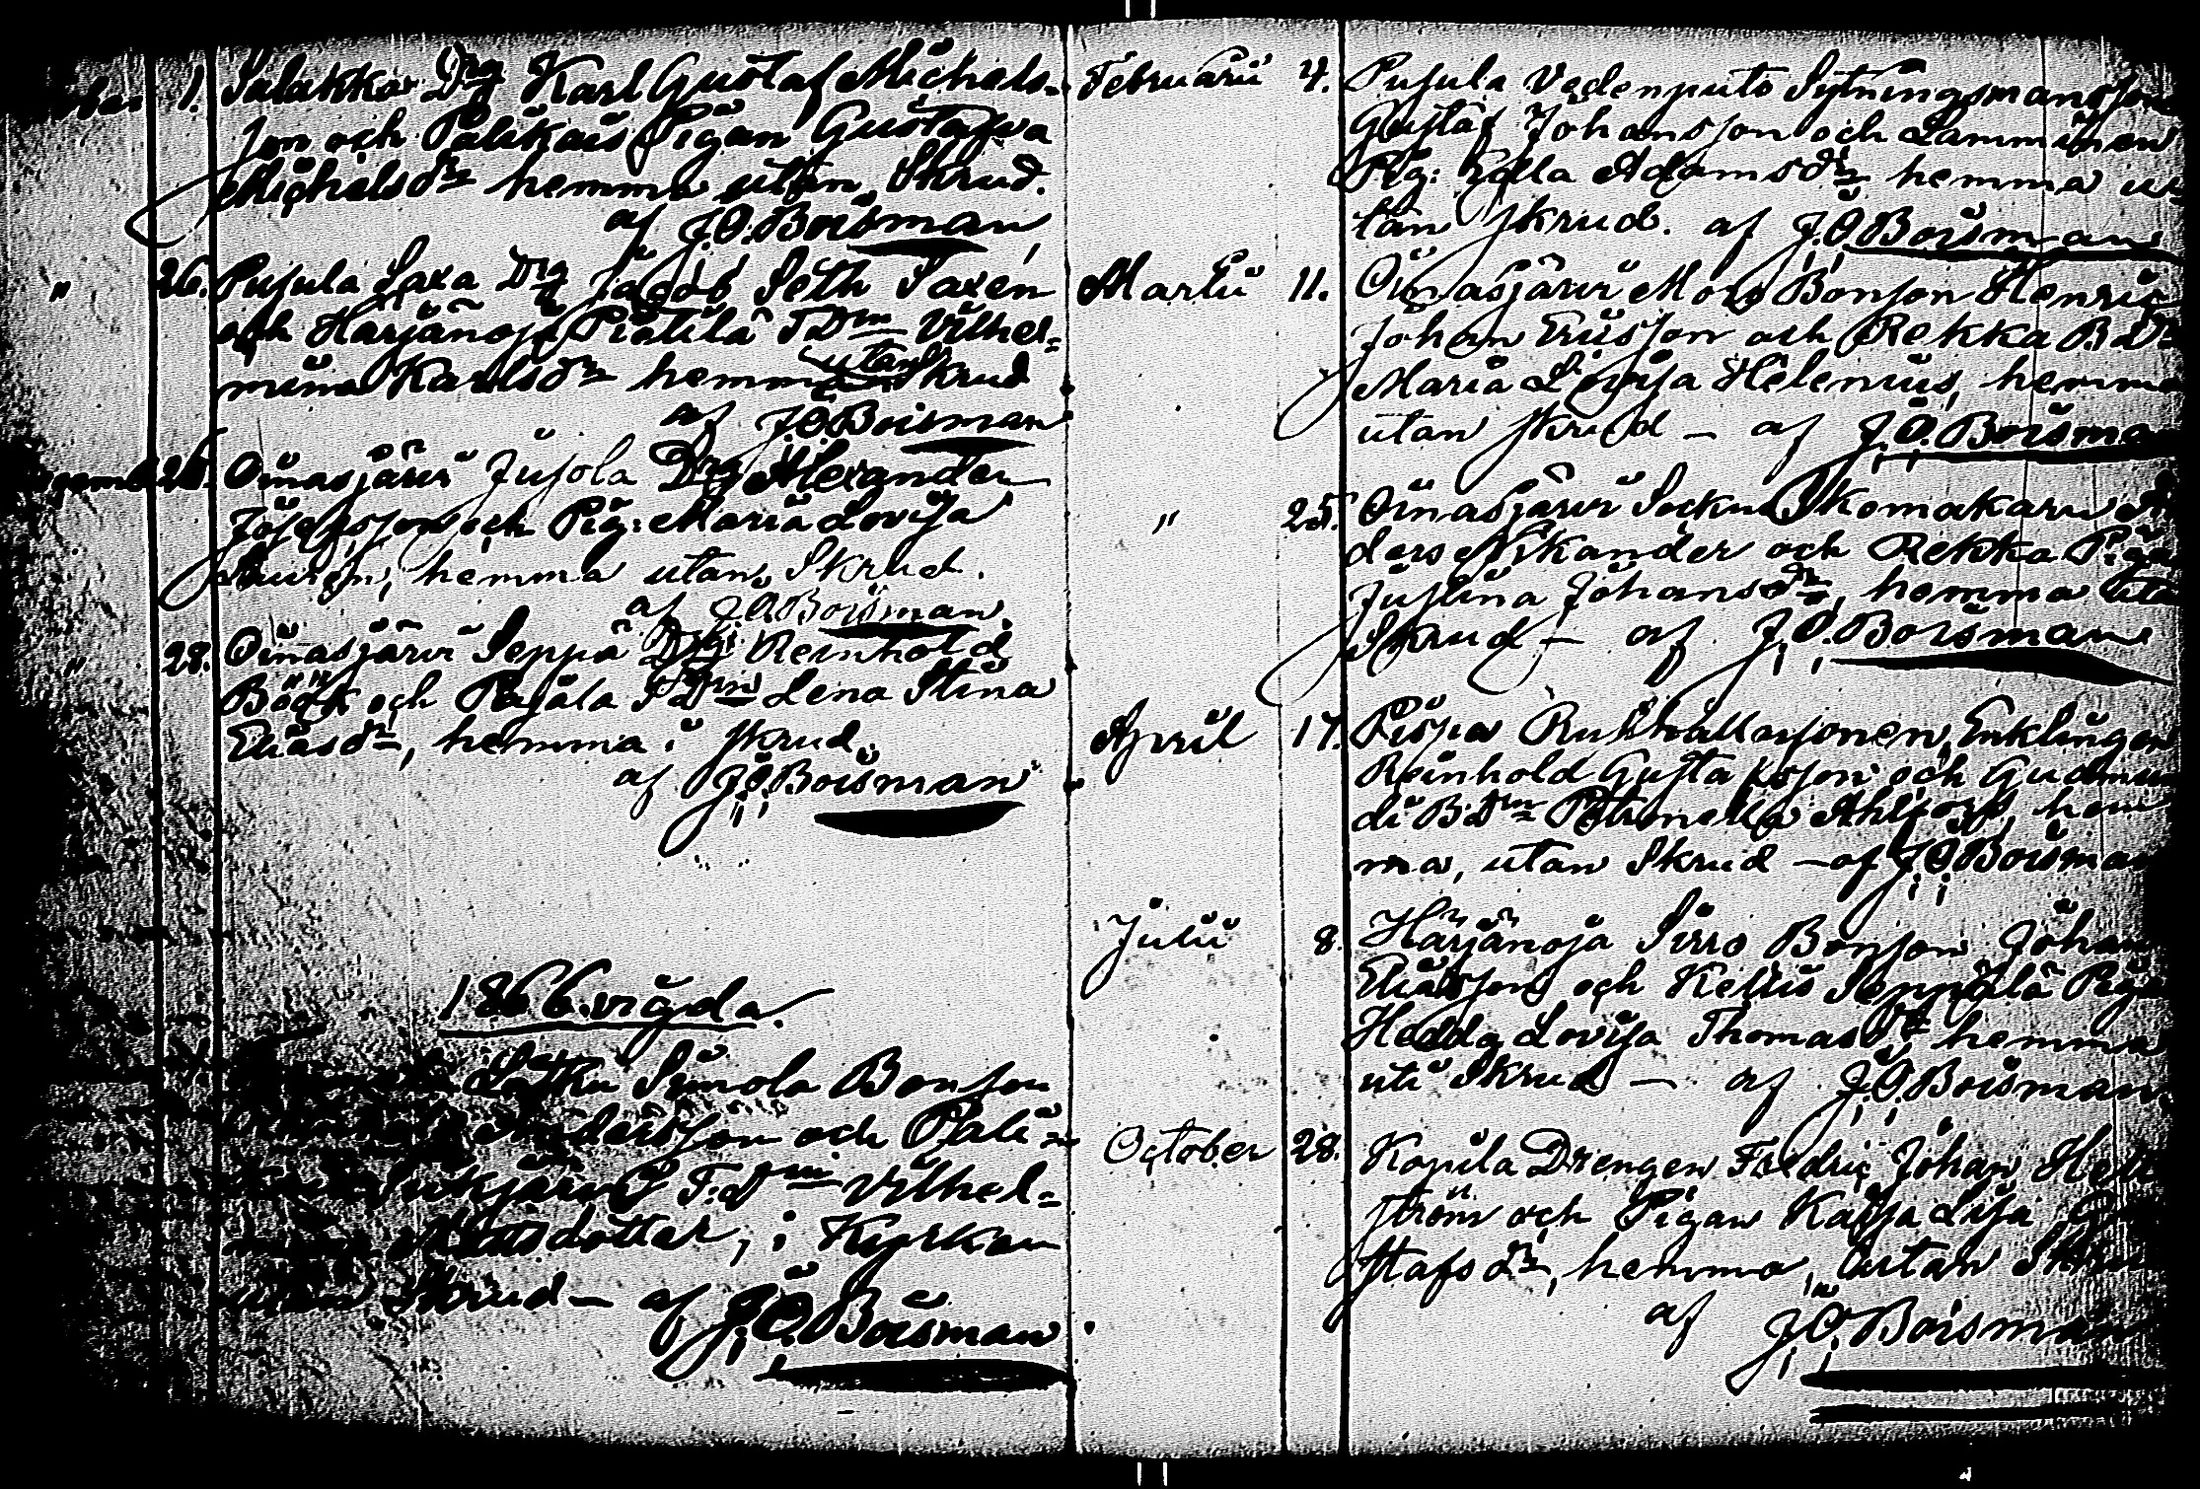 1. Salakka Drg Karl Gustaf Michels-
son och Palikais Pigan Gustafva
Michelsdr hemma utan Skrud.
af J.O. Boisman
" 26. Pusula Saxa Drg Jacob Seth Saxen
och Härjänoja Pietilä T.Dm Vilhel=
mina Karlsdr hemma utan Skrud
af J.O. Boisman
Oinasjärvi Jusola Drg Alexander
Josefsson och Pig: Maria Lovisa
hemma utan Skrud.
af J.O. Boisman
" 28. Oinasjärvi Seppä Drg: Reinhold
Böök och Pajula T.Dm Lena Stina
Eliasdr, hemma i skrud.
af J.O. Boisman
1866 vigda.
Simola Bonson
Andersson och Pali=
T.Dm Vilhel=
dotter, i Kyrkan
utan Skrud – af J.O. Boisman
Februarii 4. Pusula Vedenputo Sytningsmansson
Gustaf Johansson och Lamminen
Pig: Edla Adamsdr hemma u
tan skrud. af J.O. Boisman
Martii 11. Oinasjärvi Moro Bonson Henric
Johan Ersson och Rekka B.D
Maria Lovisa Helenius, hemma
utan skrud – af J.O. Boisman
" 25. Oinasjärvi Sockne Skomakaren
ders Nikander och Rekka Piga
Justina Johansdr, hemma
Skrud – af J.O. Boisman
April 17. Enklingen
Reinhold Gustafsson och
B.Dm Petronella hem
ma, utan Skrud – af J.O. Boisman
Julii 8. Härjänoja Sirro Bonson Johan
Eliasson och Kelkis Seppälä Piga
Hedda Lovisa Thomasdr hemma
uti Skrud – af J.O. Boisman
October 28. Kopila Drengen Fredric Johan
ström och Pigan Kajsa Lisa
stafsdr, hemma, utan
af J.O. Boisman